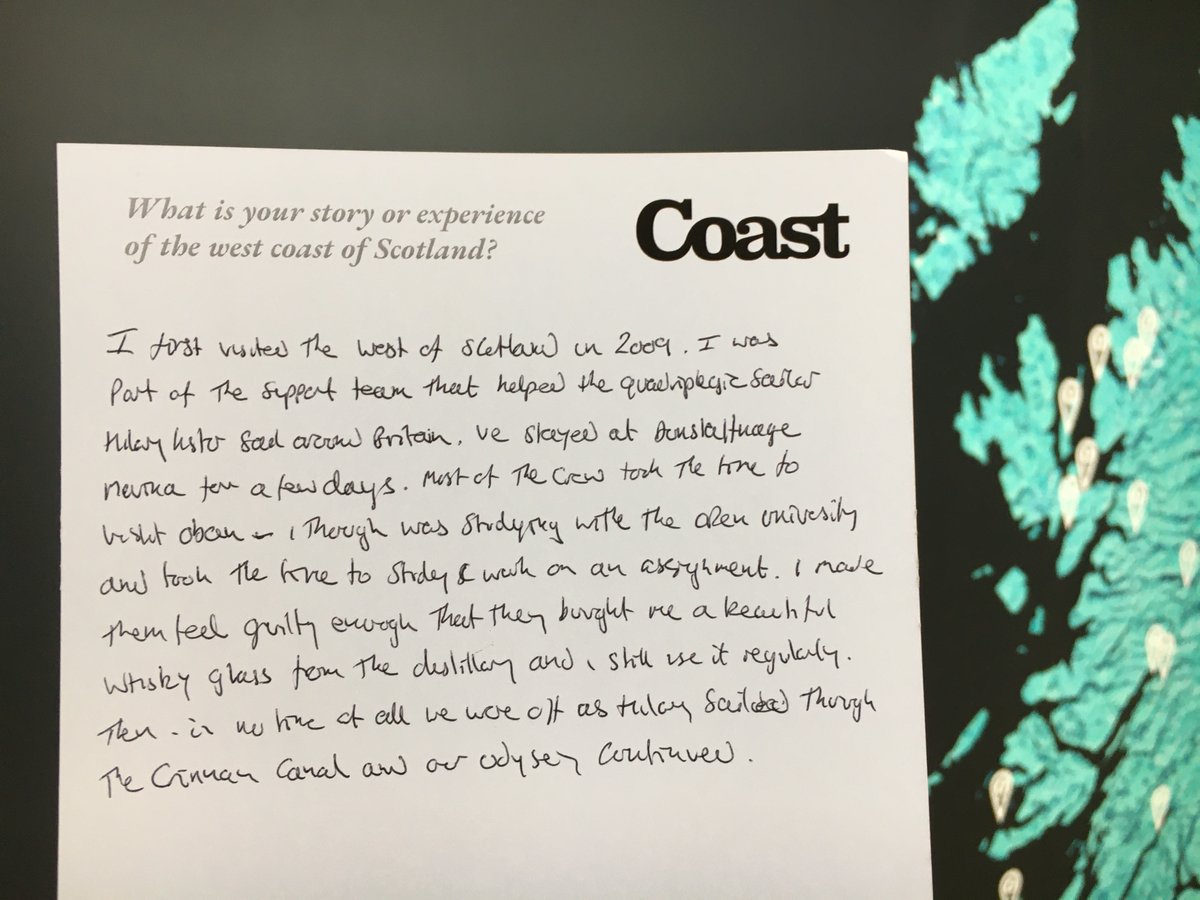 What is your story or experience
of the west coast of Scotland?
Coast
I first visited the west of Scotland in 2009. I was
Part of the support team that helped the quadriplegic Sailor
Hilary Lister Sail around Britain. We stayed at Dunstaffnage
Marina for a few days. Most of the Crew took the time to
visit Oban - I Though was studying with the Open University
and took the time to Study & work on an assignment. I made
them feel guilty enough that they bought me a beautiful
whisky glass from the distillary and I still use it regularly.
Then - in no time at all we were off as Hilary Sailed Through
The Crinnan Canal and our odysey continued.